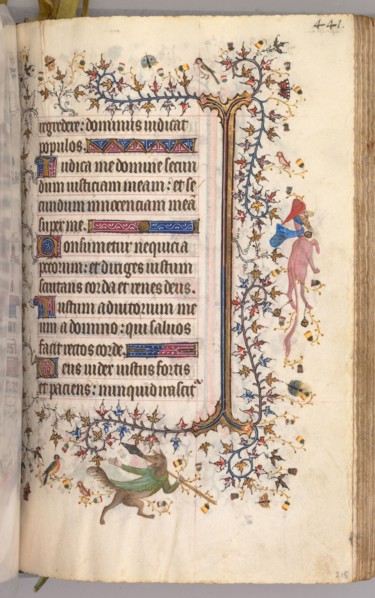 441.
regredere: dominus iudicat
populos.
Iudica me domine secun
dum iusticiam meam: et se
cundum innocenciam meā
super me.
Consumetur nequicia
peccatorum: et diriges iustum
scrutans corda et renes deus.
Iustum adiutorium me
um a domino: qui saluos
facit rectos corde.
Deus iudex iustus fortis
et paciens: nunquid irascit᷑